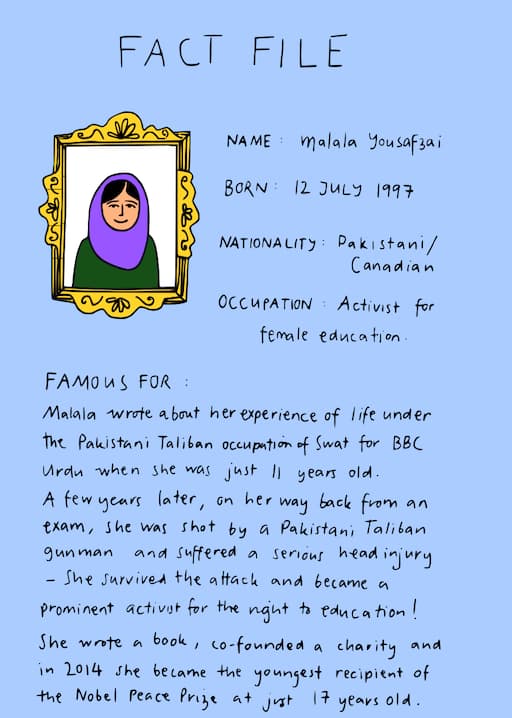 FACT FILE
NAME : Malala Yousafzai
BORN : 12 JULY 1997
NATIONALITY : Pakistani/
Canadian
OCCUPATION : Activist for
female education.
FAMOUS FOR :
Malala wrote about her experience of life under
the Pakistani Taliban occupation of Swat for BBC
Urdu when she was just 11 years old.
A few years later, on her way back from an
exam, she was shot by a Pakistani Taliban
gunman and suffered a serious head injury
- She survived the attack and became a
prominent activist for the right to education!
She wrote a book, co-founded a charity and
in 2014 she became the youngest recipient of
the Nobel Peace Prize at just 17 years old.